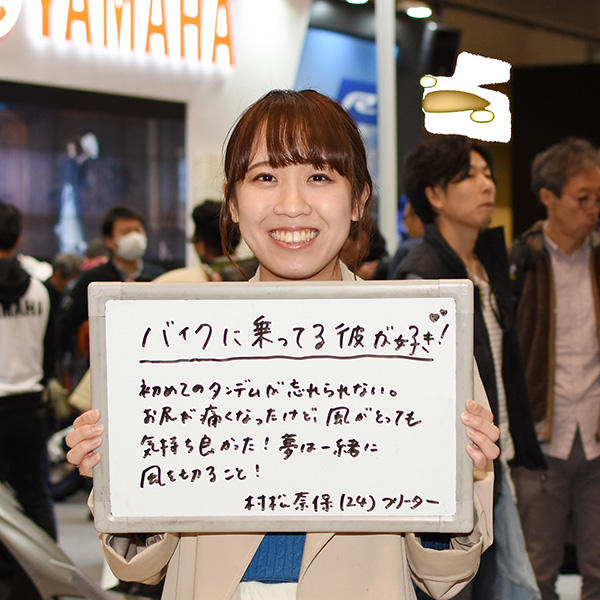 YAMAHA
バイクに乗ってる彼が好き!
初めてのタンデムが忘れられない。
お尻が痛くなったけど、風がとっても
気持ち良かった!夢は一緒に
風を切ること!
村松奈保(24)フリーター